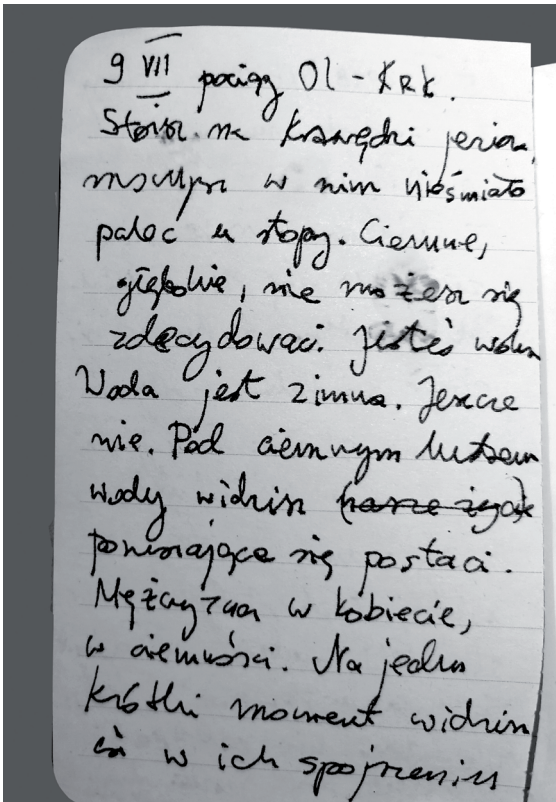 9 VII pociąg Ol - KRK.
Stoisz na krawędzi jeziora,
moczysz w nim nieśmiało
palec u stopy. Ciemne,
głębokie, nie możesz się
zdecydować. Jesteś wolna
Woda jest zimna. Jeszcze
nie. Pod ciemnym lustrem
wody widzisz (nasze życie)
poruszające się postaci.
Mężczyzna w kobiecie,
w ciemności. Na jeden
krótki moment widzisz
w ich spojrzeniu